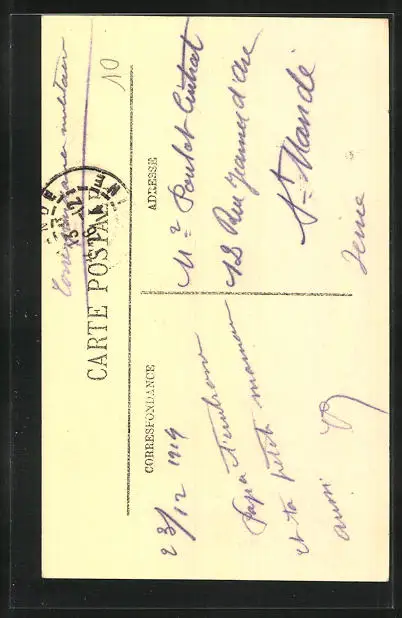 Correspondance militaire
10
CARTE POSTALE
CORRESPONDANCE
ADRESSE
23/12 1919
Papa t'embrasse
et ta petite maman
aussi
Mr Poulet Cintrat
12 Rue Jeanne d'Arc
St Mandé
Seine